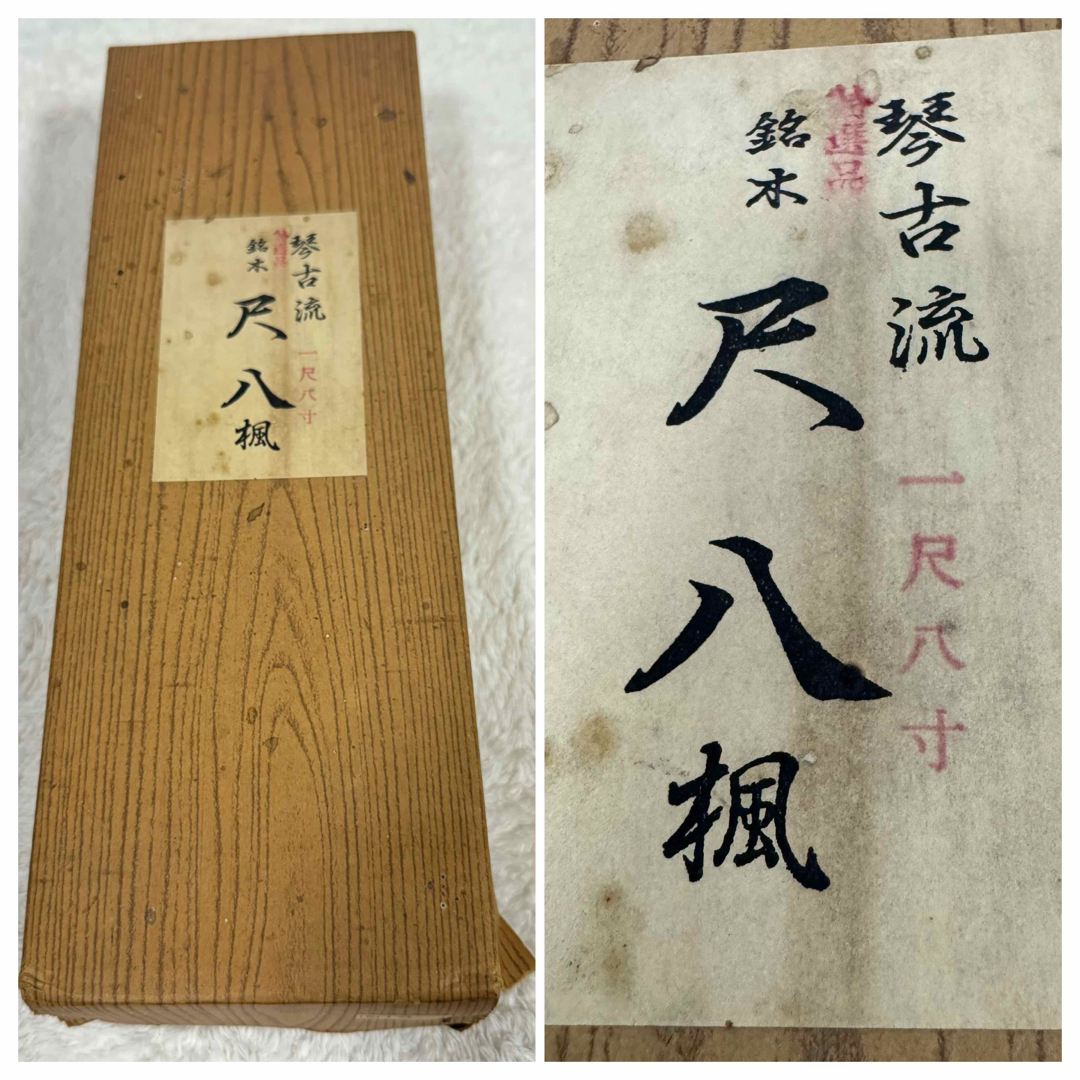 琴古流
一尺八寸
特選品
銘木
尺八
楓
琴古流
一尺八寸
特選品
銘木
尺八
楓